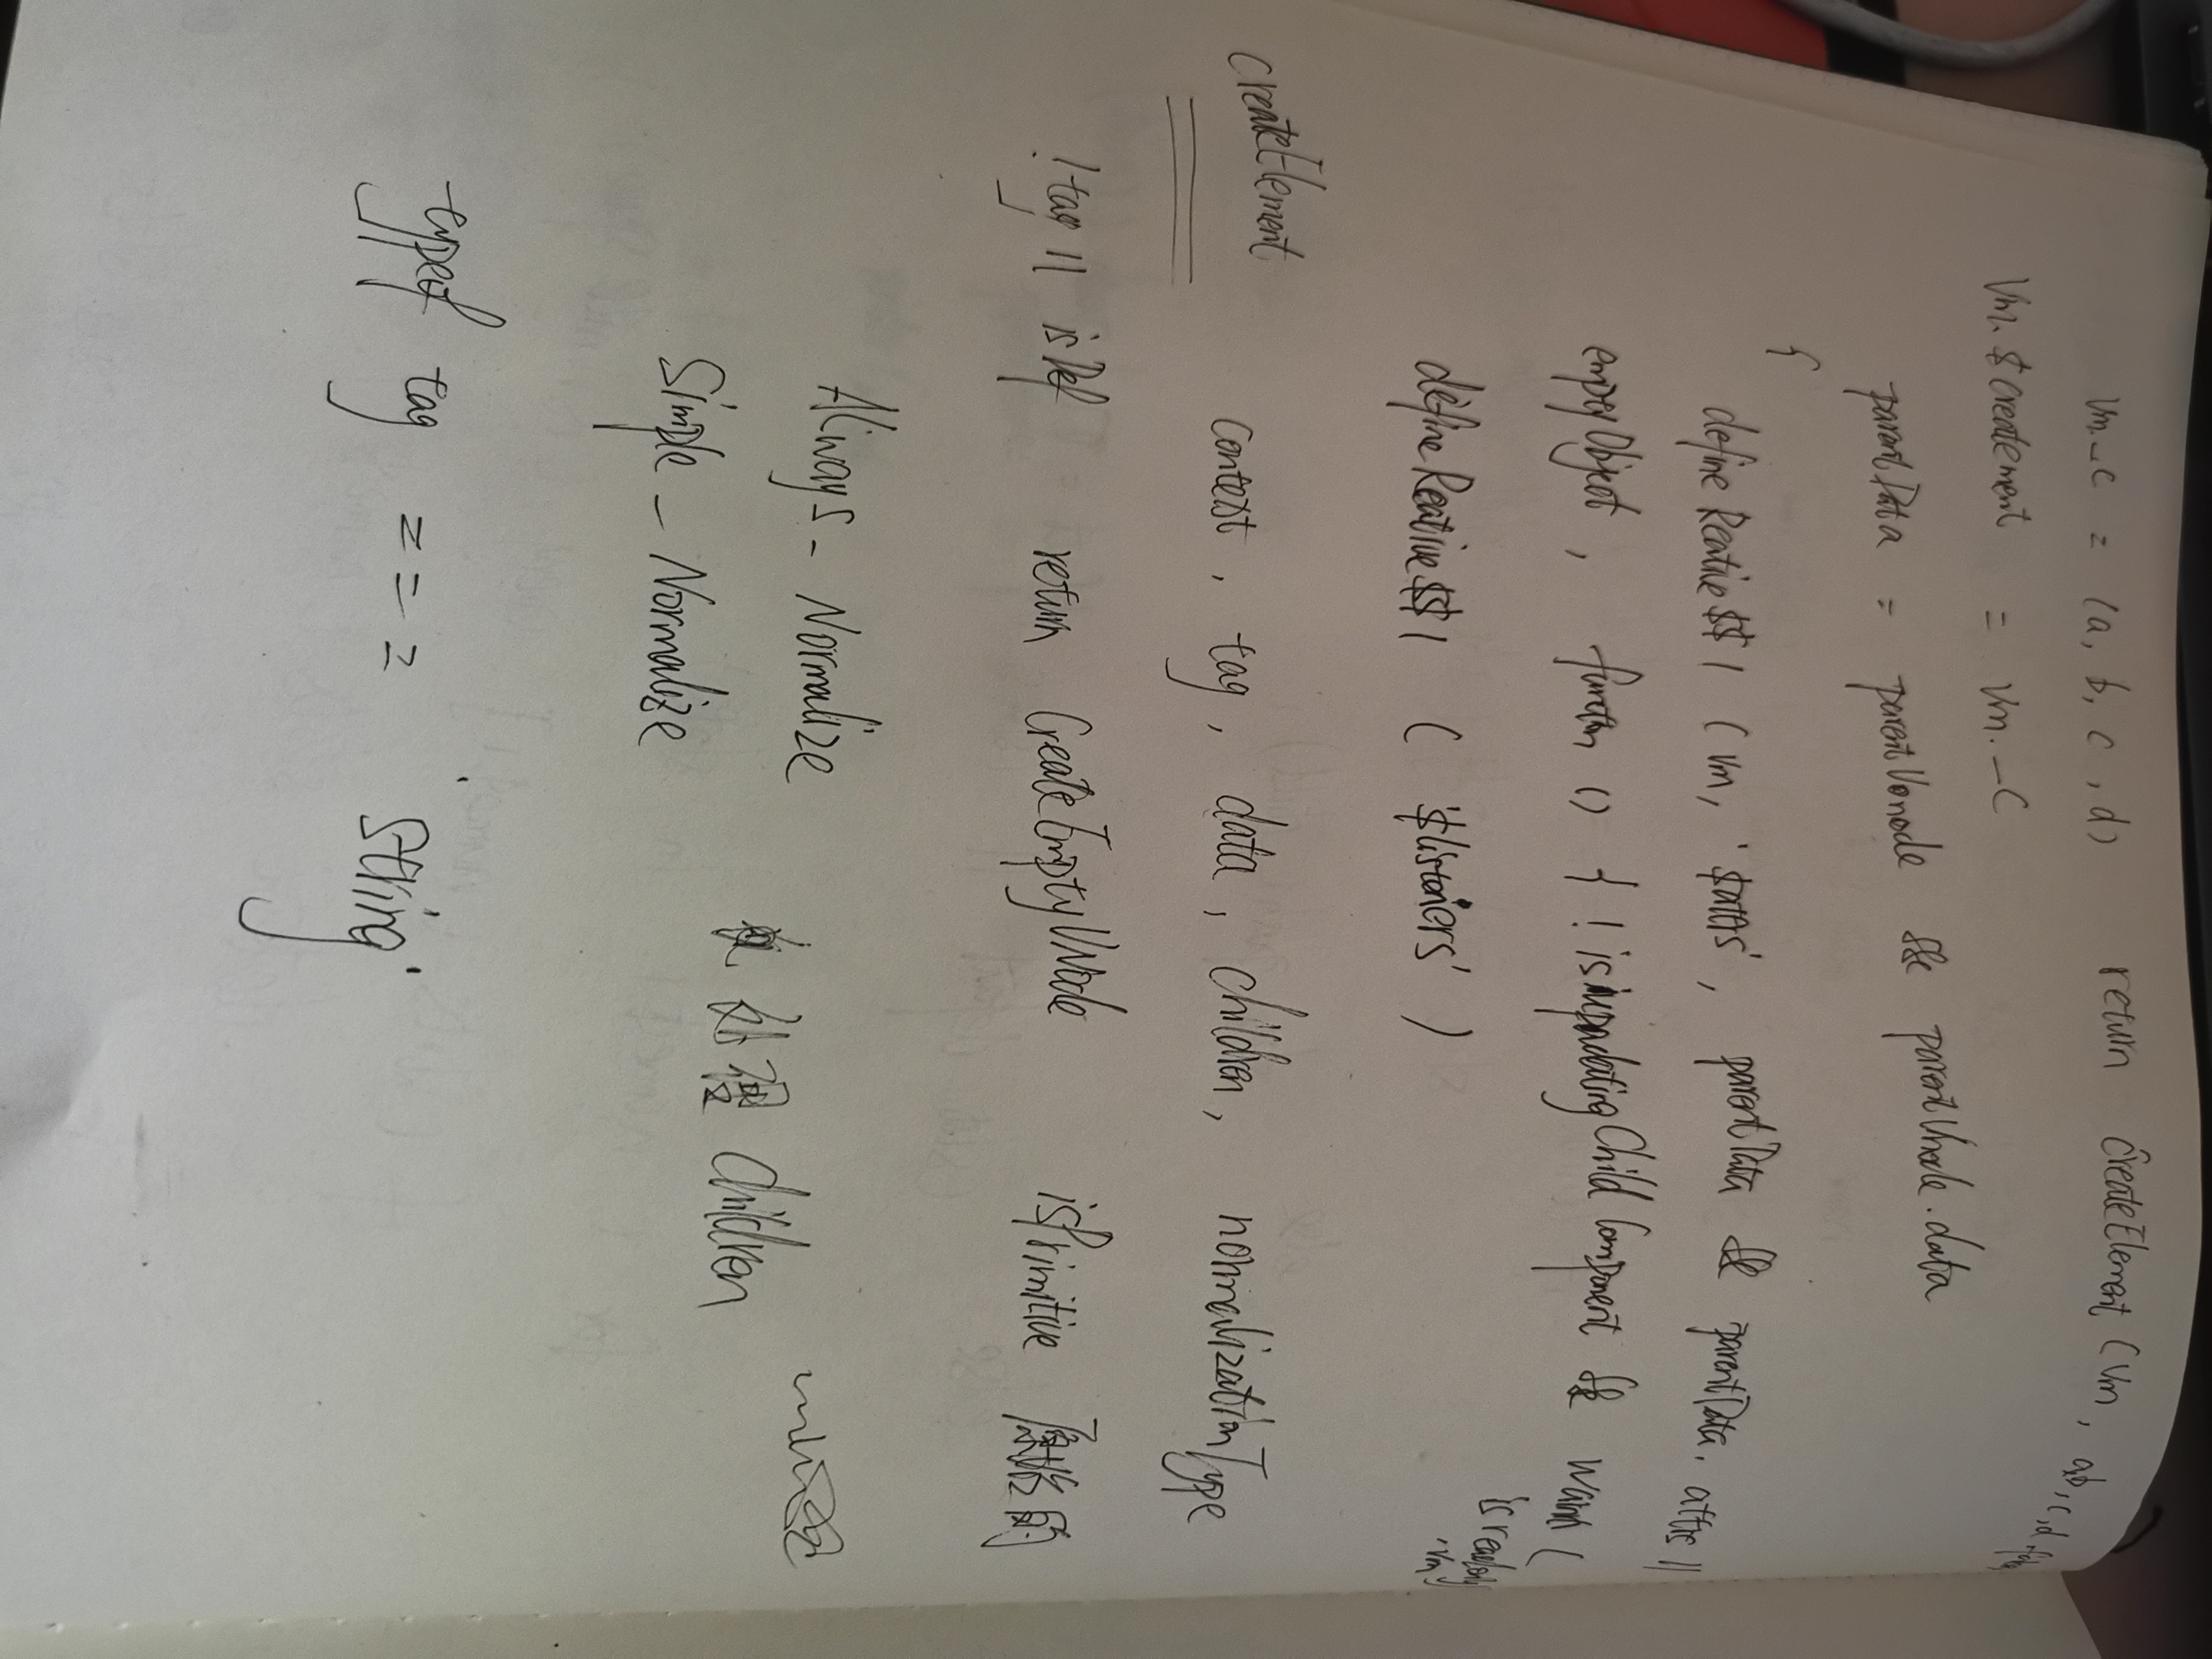 vm._c = (a, b, c, d) return createElement (vm, a,b,c,d,false
vm.$createment = vm._c
parentData = parentVonode && parentVnode.data
{
define Reative$$1 (vm, '$attrs', parentData && parentData.attrs ||
empyObject, function () { !isupadatingChildComponent && warn(
define Reative$$1 ( '$listeners' ) isreadonly
,vm)
createElement
context, tag, data, children, normalizationType
!tag || isDef return CreateEmptyVNode isPrimitive 原始的
Always-Normalize
Simple-Normalize 处理 children
typeof tag === 'string'